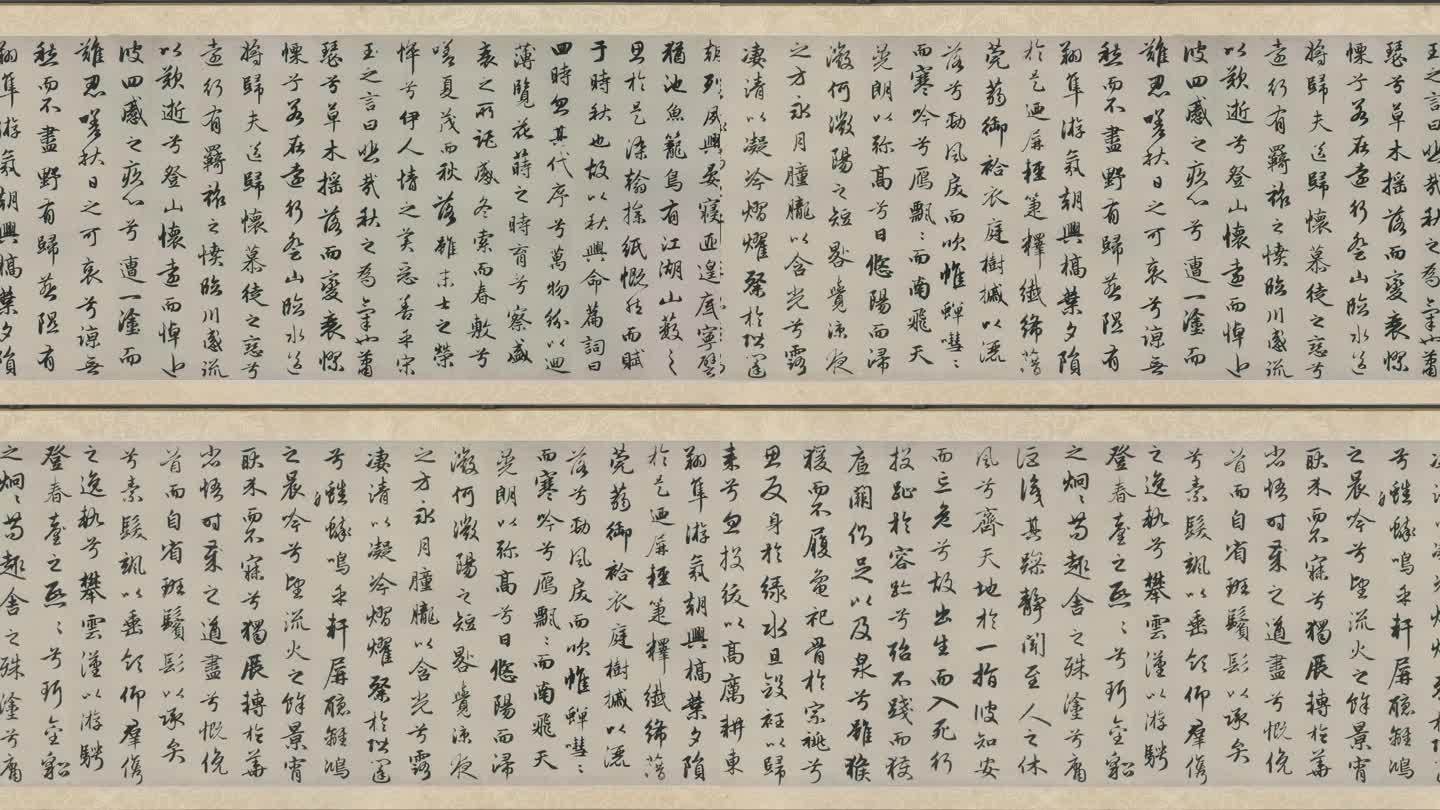 玉之言曰悲哉秋之為氣也蕭
瑟兮草木搖落而變衰憭
慄兮若在遠行登山臨水送
將歸夫送歸懷慕徒之戀兮
遠行有羈旅之憤臨川感流
以歎逝兮登山懷遠而悼近
彼四慼之疚心兮遭一塗而
難忍嗟秋日之可哀兮諒無
愁而不盡野有歸燕隰有
翔隼游氛朝興槁葉夕隕
於是迺屏輕箑釋纖絺藉
莞蒻御袷衣庭樹摵以灑
落兮勁風戾而吹帷蟬嘒々
而寒吟兮雁飄々而南飛天
晃朗以彌高兮日悠陽而浸
微何微陽之短晷覺涼夜
之方永月朣朧以含光兮露
淒清以凝冷熠燿粲於階闥
朝列夙興晏寢匪遑底寧譬
猶池魚籠鳥有江湖山藪之
思於是染翰操紙慨然而賦
于時秋也故以秋興命篇詞曰
四時忽其代序兮萬物紛以迴
薄覽花蒔之時育兮察盛
衰之所託感冬索而春敷兮
嗟夏茂而秋落雖末士之榮
悴兮伊人情之美惡善乎宋
玉之言曰悲哉秋之為氣也蕭
瑟兮草木搖落而變衰憭
慄兮若在遠行登山臨水送
將歸夫送歸懷慕徒之戀兮
遠行有羈旅之憤臨川感流
以歎逝兮登山懷遠而悼近
彼四慼之疚心兮遭一塗而
難忍嗟秋日之可哀兮諒無
愁而不盡野有歸燕隰有
翔隼游氛朝興槁葉夕隕
兮蟋蟀鳴乎軒屏聽離鴻
之晨吟兮望流火之餘景宵
耿介而不寐兮獨展轉於華
省悟時歲之遒盡兮慨俛
首而自省斑鬢髟以承弁
兮素髮颯以垂領仰群儁
之逸軌兮攀雲漢以游騁
登春臺之熙々兮珥金貂
之炯々苟趣舍之殊塗兮庸
詎識其躁靜聞至人之休
風兮齊天地於一指彼知安
而忘危兮故出生而入死行
投趾於容跡兮殆不踐而獲
底闕側足以及泉兮雖猴
猨而不履龜祀骨於宗祧兮
思反身於綠水且斂衽以歸
來兮忽投紱以高厲耕東
翔隼游氛朝興槁葉夕隕
於是迺屏輕箑釋纖絺藉
莞蒻御袷衣庭樹摵以灑
落兮勁風戾而吹帷蟬嘒々
而寒吟兮雁飄々而南飛天
晃朗以彌高兮日悠陽而浸
微何微陽之短晷覺涼夜
之方永月朣朧以含光兮露
淒清以凝冷熠燿粲於階闥
兮蟋蟀鳴乎軒屏聽離鴻
之晨吟兮望流火之餘景宵
耿介而不寐兮獨展轉於華
省悟時歲之遒盡兮慨俛
首而自省斑鬢髟以承弁
兮素髮颯以垂領仰群儁
之逸軌兮攀雲漢以游騁
登春臺之熙々兮珥金貂
之炯々苟趣舍之殊塗兮庸